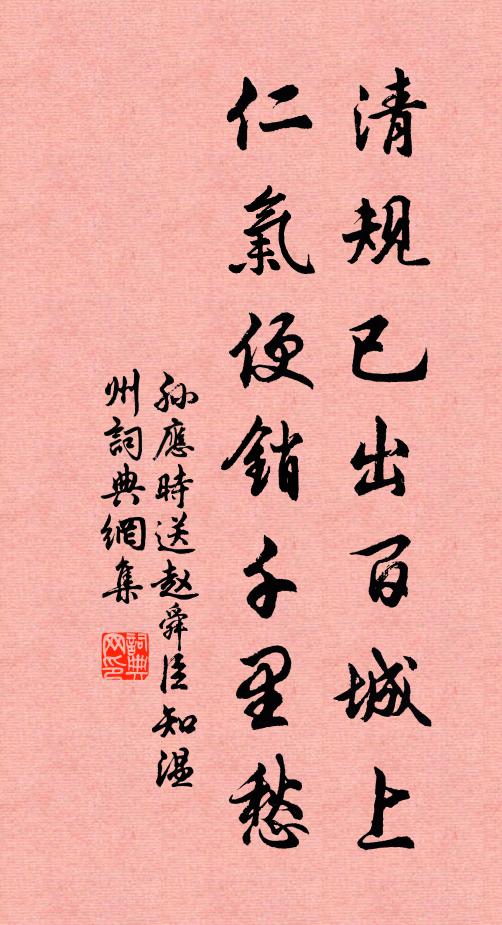 清規已出百城上
仁氣便銷千里愁
孫應時送赵舜臣知温
州詞典網集
詞典网印